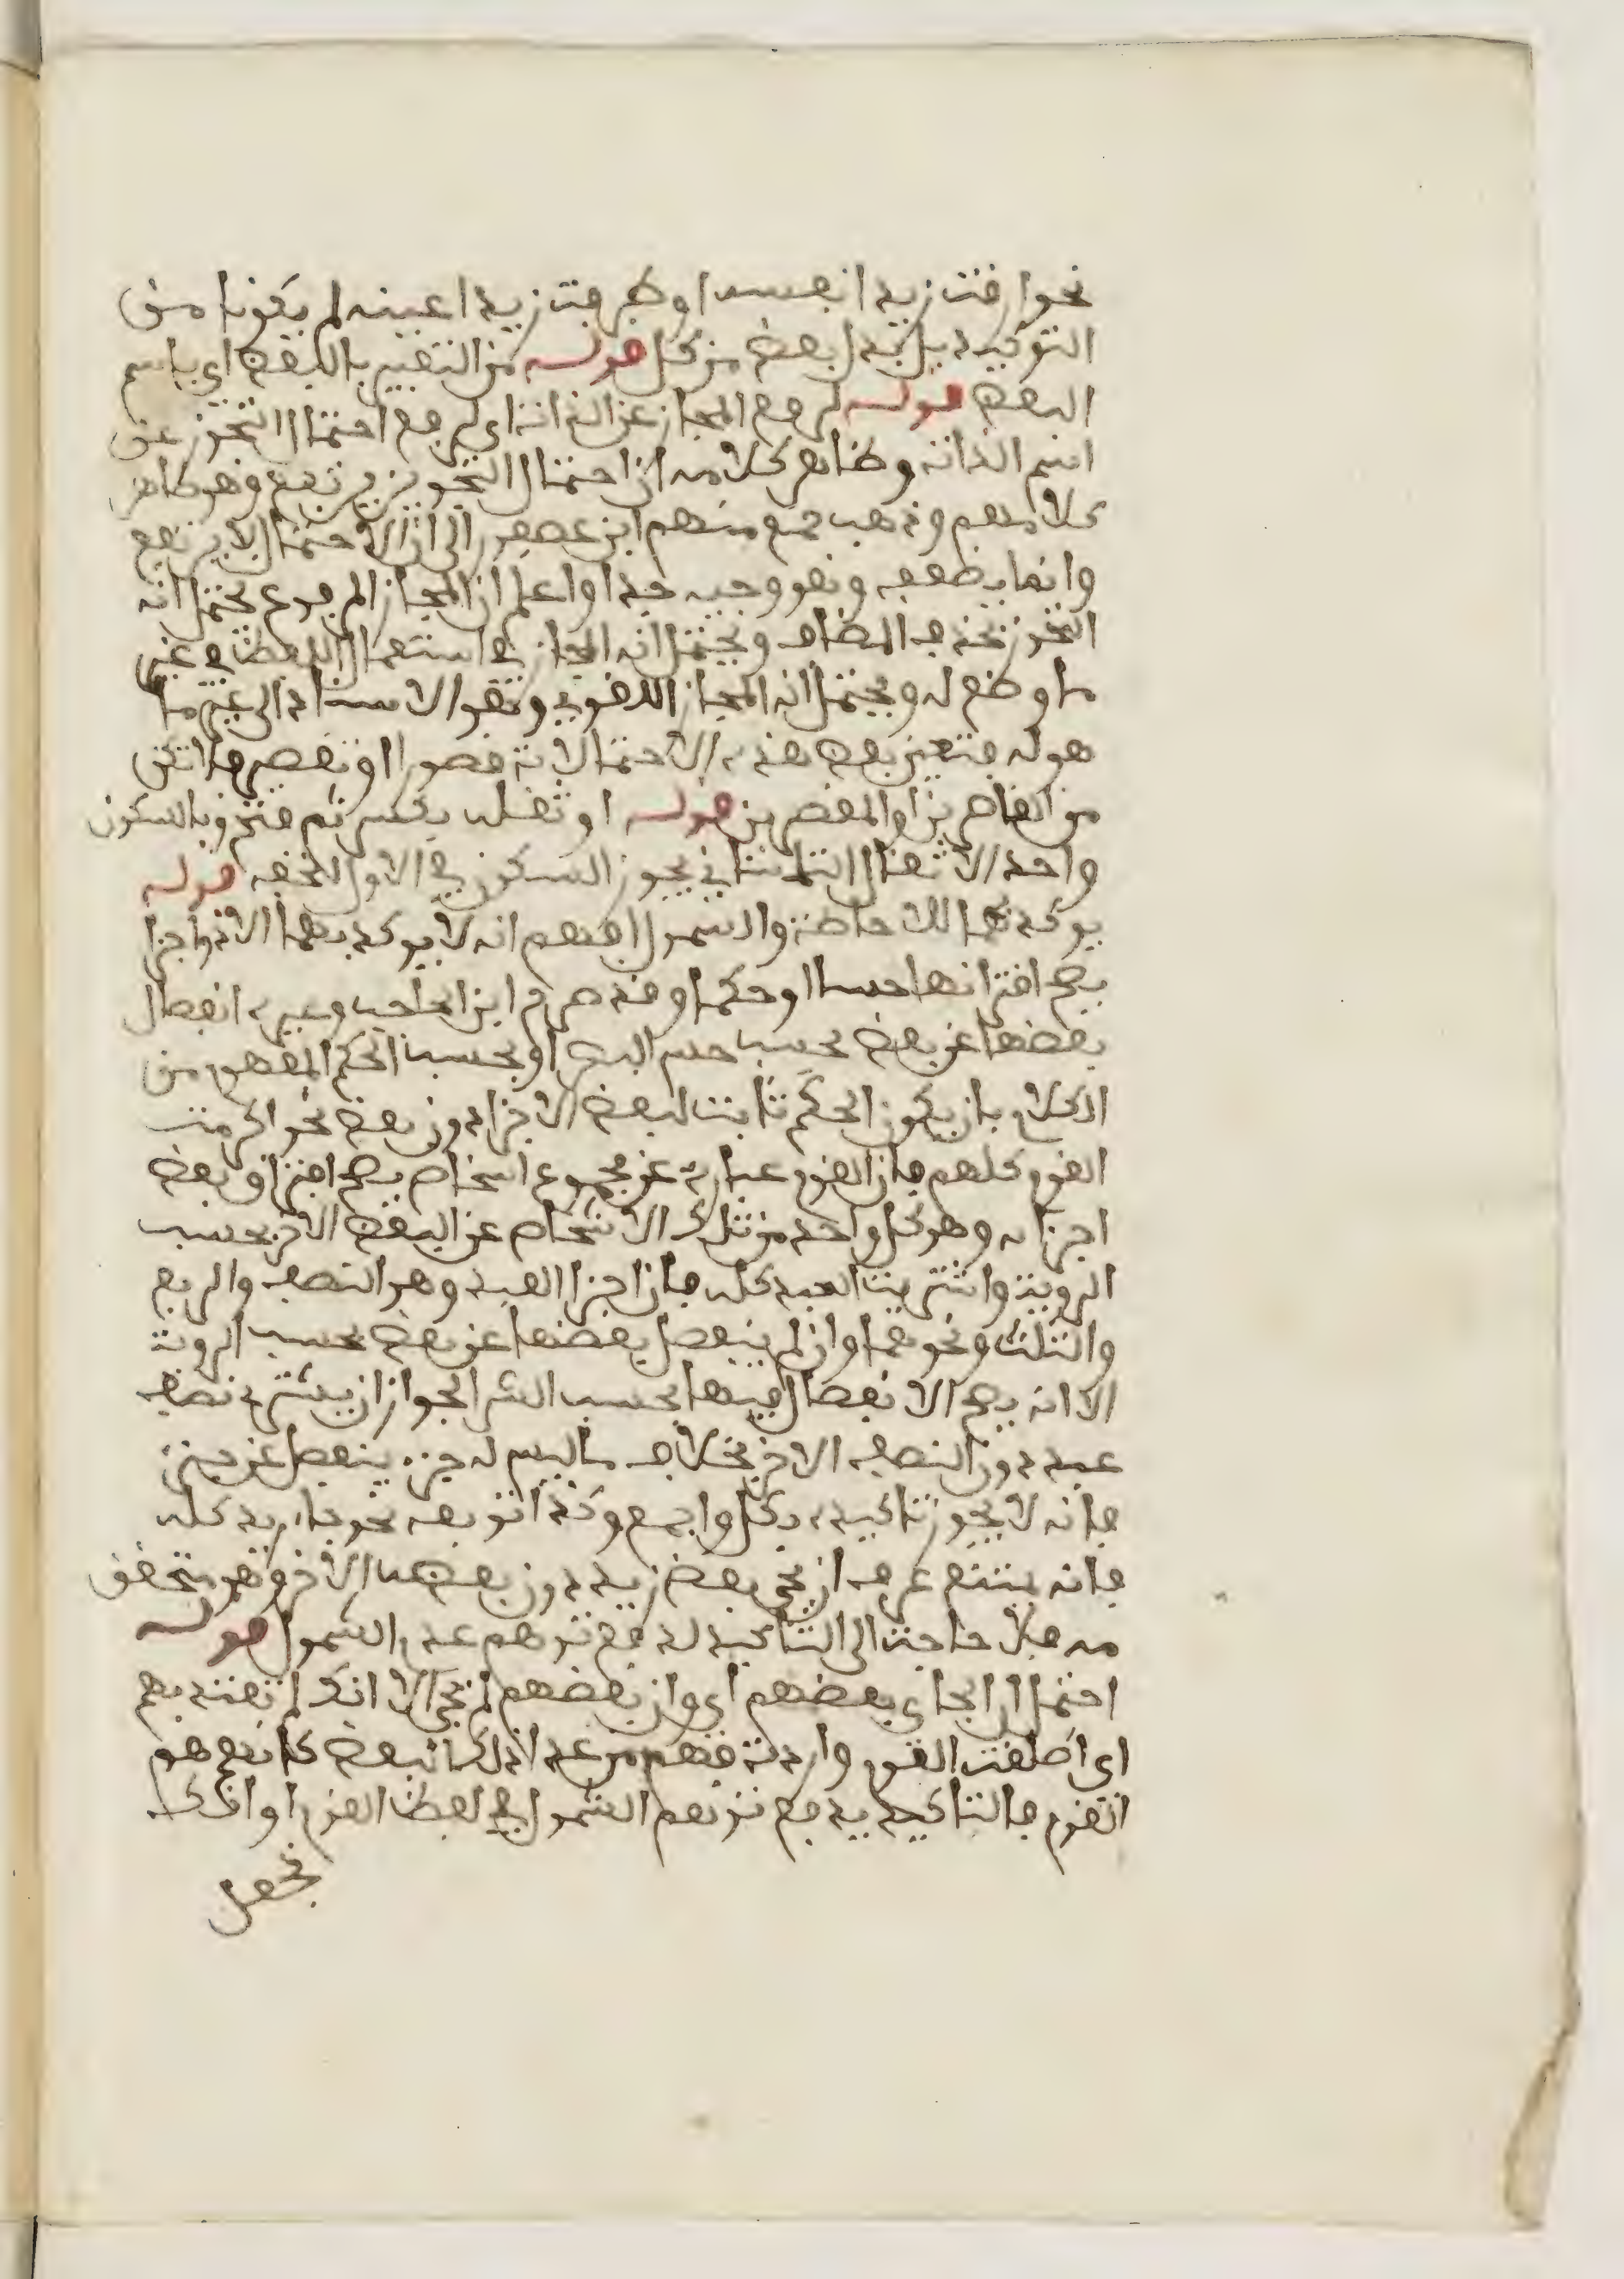 نحو ارقت زيدا نفسه او طرفت زيدا عينه لم يكونا من
التوكيد بل بدل بعض من كل قوله من التعبير بالبعض اي باسم
البعض قوله لرفع المجاز عن الذات اي لرفع احتمال التجوز عن
اسم الذات وظاهر كلامه ان احتمال التجوز يرتفع وهو ظاهر
كلامهم وذهب جمع منهم ابن عصفور الى ان الاحتمال لا يرتفع
وانما يضعف وهو وجيه جدا واعلم ان المجاز المرفوع يحتمل انه
التجوز بحذف المضاف ويحتمل انه المجاز في استعمال اللفظ في غير
ما وضع له ويحتمل انه المجاز اللغوي وهو الاسناد الى غير ما
هو له فتعين بعض هذه الاحتمالات قصور او تقصير فلا تكن
من القاصرين او المقصرين قوله او ثقله بكسر ثم فتح وبالسكون
واحد الاثقال الثلاثة اي يجوز السكون في الاول للخفة قوله
يوكد بهما للاحاطة والشمول افهم انه لا يوكد بهما الا ذو اجزا
يصح افتراقها حسا او حكما وقد صرح ابن الحاجب وغيره انفصال
بعضها عن بعض بحسب حس البصر او بحسب الحكم المفهوم من
الكلام بان يكون الحكم ثابتا لبعض الاجزا دون بعض نحو اكرمت
القوم كلهم فان القوم عبارة عن مجموع اشخاص يصح افتراق بعض
اجزائه وهو كل واحد من تلك الاشخاص عن البعض الاخر بحسب
الروية واشتريت العبد كله فان اجزا العبد وهو النصف والربع
والثلث ونحوهما وان لم ينفصل بعضها عن بعض بحسب الروية
الا انه يصح الانفصال فيها بحسب الشرا لجواز ان يشتري نصف
عبد دون النصف الاخر بخلاف ما ليس له جزء ينفصل عن جزء
فانه لا يجوز تاكيده بكل واجمع وكذا توبعه نحو جاء زيد كله
فانه يمتنع عرفا ان يجي بعض زيد دون بعضه الاخر وهو متحقق
فيه فلا حاجة الى التاكيد لدفع توهم عدم الشمول قوله
احتمال ان الجاي بعضهم اي وان بعضهم لم يجي الا انك لم تعتد بهم
اي اطلقت القوم واردت منهم من عدا ذلك البعض كانهم هم
القوم فالتاكيد يدفع توهم الشمول في لفظ القوم او انك
تجعل